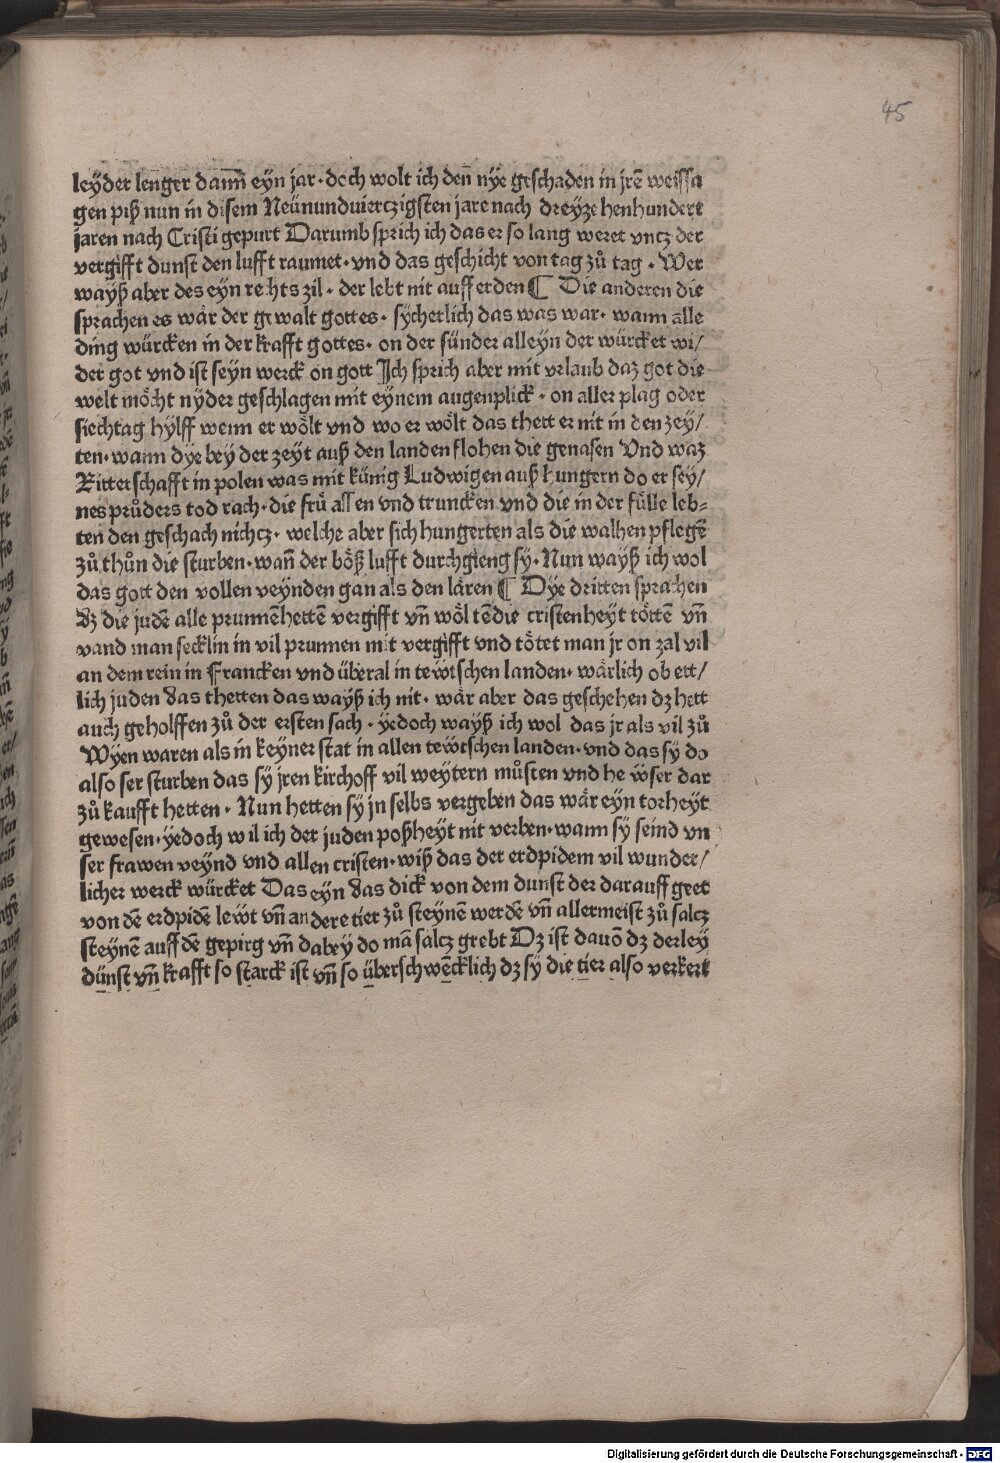 45
leyder lenger dann̄ eyn jar · doch wolt ich den̄ nye geschaden in jrē weissa
gen piß nun in disem Neünundvierczigsten jare nach dreyzehenhundert
jaren nach Cristi gepurt Darumb sprich ich das er so lang weret vntz der
vergifft dunst den lufft raumet · vnd das geschicht von tag zů tag · Wer
wayß aber des eyn rehts zil · der lebt nit auff erden ¶ Die anderen die
sprachen es wär der gewalt gottes · sycherlich das was war · wann alle
ding würcken in der krafft gottes · on der sünder alleyn der würcket wi/
der got vnd ist seyn werck on gott Ich sprich aber mit vrlaub daz got die
welt möcht nyder geschlagen mit eynem augenplick · on aller plag oder
siechtag hylff wenn er wölt vnd wo er wölt das thett er nit in den zey/
ten · wann dye bey der zeyt auß den landen flohen die genasen Vnd waz
Ritterschafft in polen was mit künig Ludwigen auß hungern do er sey/
nes průders tod rach · die frů assen vnd truncken vnd die in der fülle leb=
ten den geschach nichcz · welche aber sich hungerten als die walhen pflegē
zů thůn die sturben · wan̄ der böß lufft durchgieng sy · Nun wayß ich wol
das gott den vollen veynden gan als den lären ¶ Dye dritten sprachen
dz die judē alle prunnē hettē vergifft vn̄ wöltē die cristenheyt töttē vn̄
vand man secklin in vil prunnen mit vergifft vnd tötet man jr on zal vil
an dem rein in Francken vnd überal in tewtschen landen · wärlich ob ett/
lich juden das thetten das wayß ich nit · wär aber das geschehen dz hett
auch geholffen zů der ersten sach · yedoch wayß ich wol das jr als vil zů
Wyen waren als in keyner stat in allen tewtschen landen · vnd das sy do
also ser sturben das sy jren kirchoff vil weytern můsten vnd hewser dar
zů kaufft hetten · Nun hetten sy jn selbs vergeben das wär eyn torheyt
gewesen · yedoch wil ich der juden poßheyt nit verben · wann sy seind vn
ser frawen veynd vnd allen cristen · wiß das der erdpidem vil wunder/
licher werck würcket Das eyn das dick von dem dunst der darauff geet
von dē erdpidē lewt vn̄ andere tier zů steynē werdē vn̄ allermeist zů salcz
steynē auff dē gepirg vn̄ dabey do mā salcz grebt Dz ist dauō dz derley
dünst vn̄ krafft so starck ist vn̄ so überschwēcklich dz sy die tier also verkert
Digitalisierung gefördert durch die Deutsche Forschungsgemeinschaft - DFG